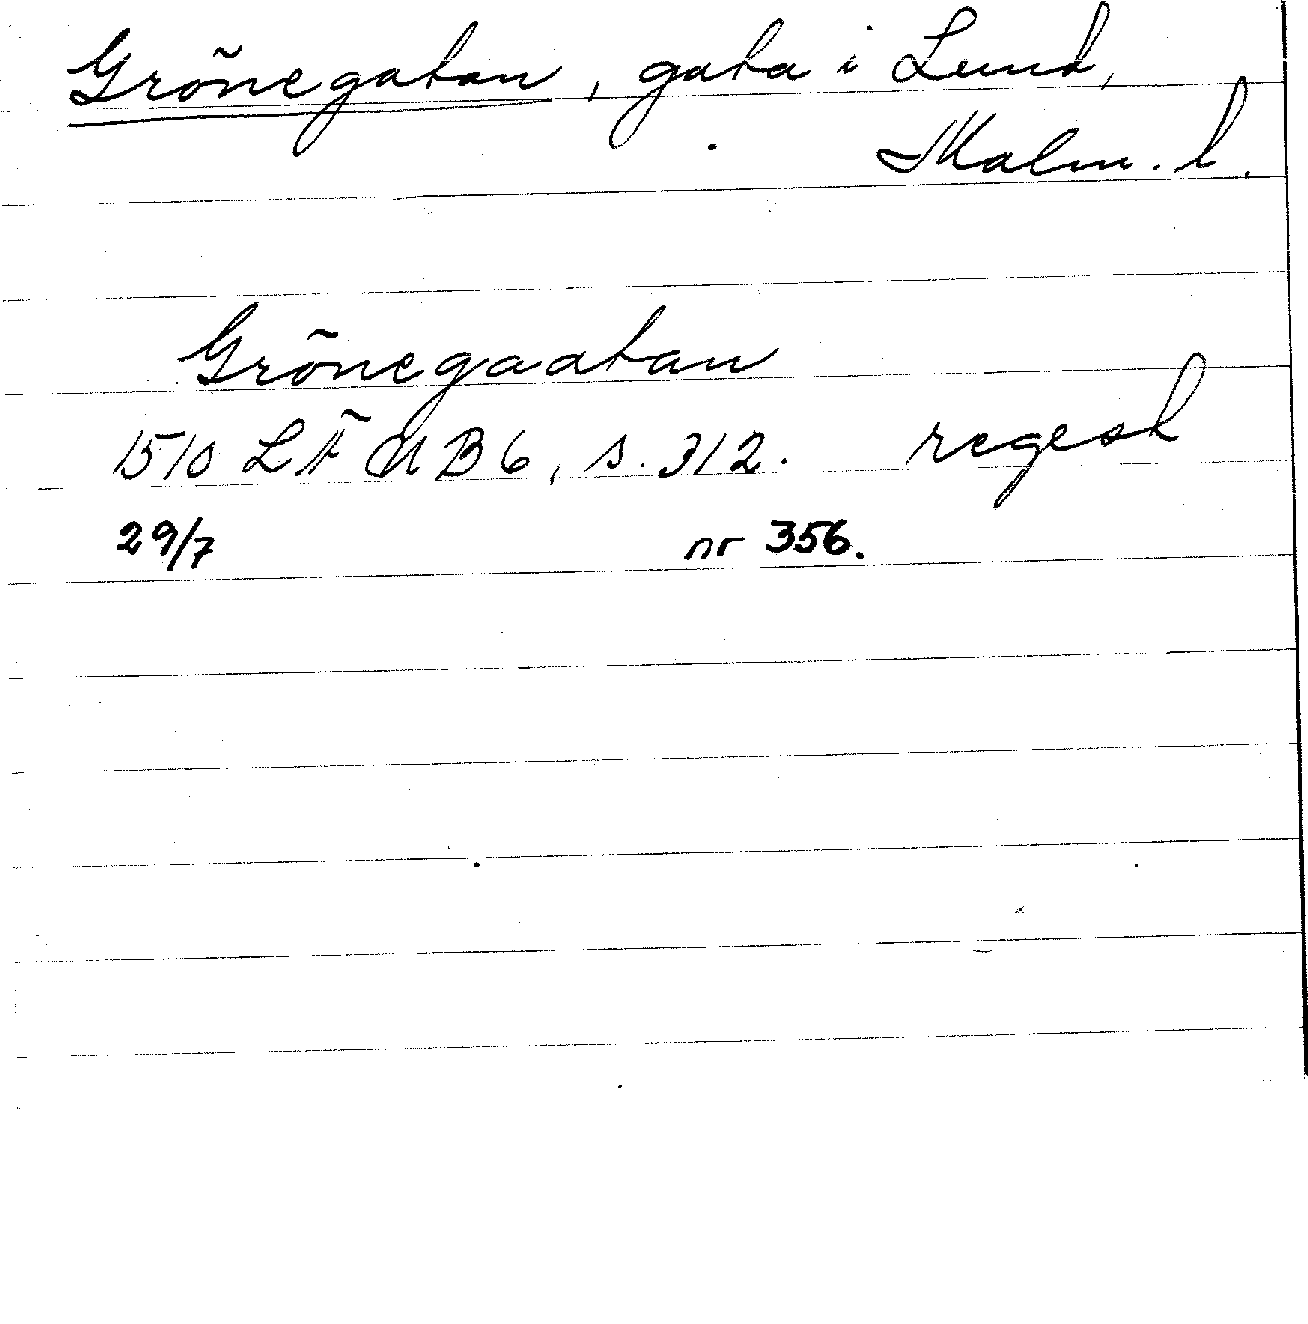 Grönegatan, gata i Lund,
Malm. l.
Grönegaatan
1510 LÄUB 6, s. 312. regest
29/7 nr 356.